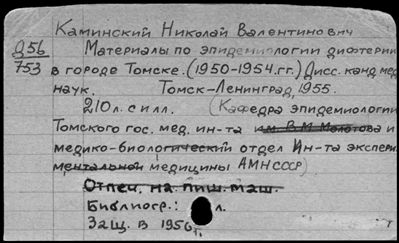 Каминский Николай Валентинович
Д56 Материалы по эпидемиологии дифтерии
753 в городе Томске. (1950-1954.гг.) Дисс. канд. мед.
наук. Томск-Ленинград, 1955.
210 л. с илл. (Кафедра эпидемиологии
Томского гос. мед. ин-та им. В.М. Молотова и
медико-биологический отдел Ин-та экспери
ментальной медицины АМН СССР)
Отпеч. на пиш. маш.
Библиогр.: л.
Защ. в 1956 г.